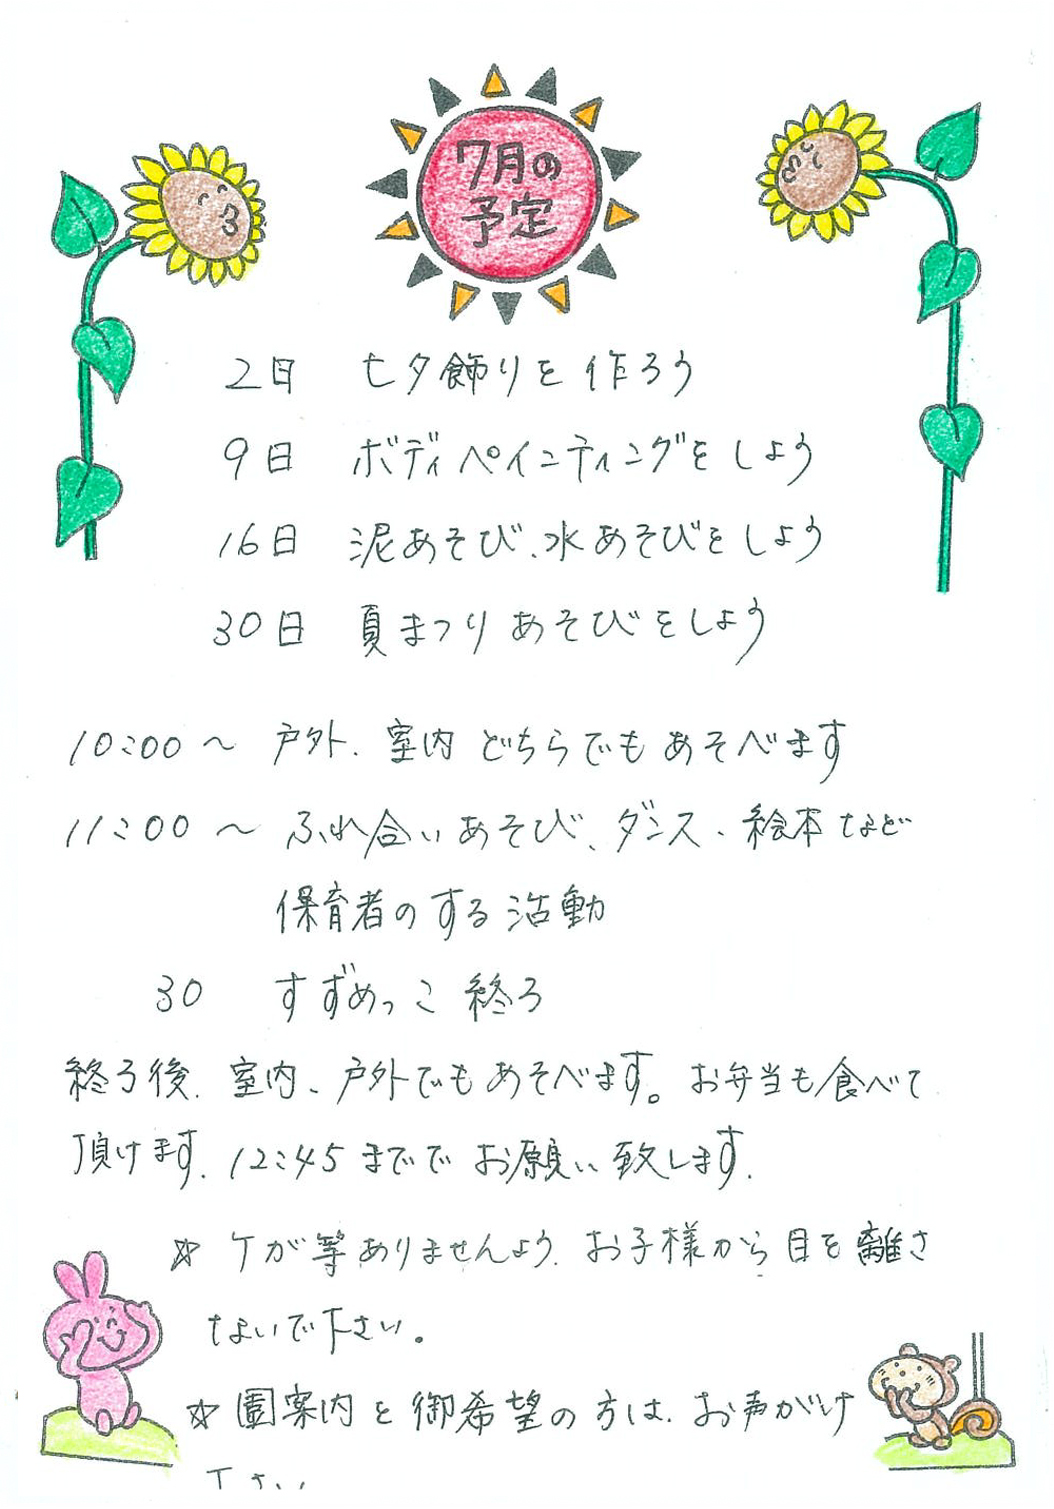 7月の
予定
2日 七夕飾りを作ろう
9日 ボディペインティングをしよう
16日 泥あそび、水あそびをしよう
30日 夏まつりあそびをしよう
10:00～ 戸外、室内どちらでもあそべます
11:00～ ふれ合いあそび、ダンス、絵本など
保育者のする活動
30 すずめっこ終了
終了後、室内、戸外でもあそべます。お弁当も食べて
頂けます。12:45まででお願い致します。
☆ケガ等ありませんよう、お子様から目を離さ
ないで下さい。
☆園案内を御希望の方は、お声がけ
下さい